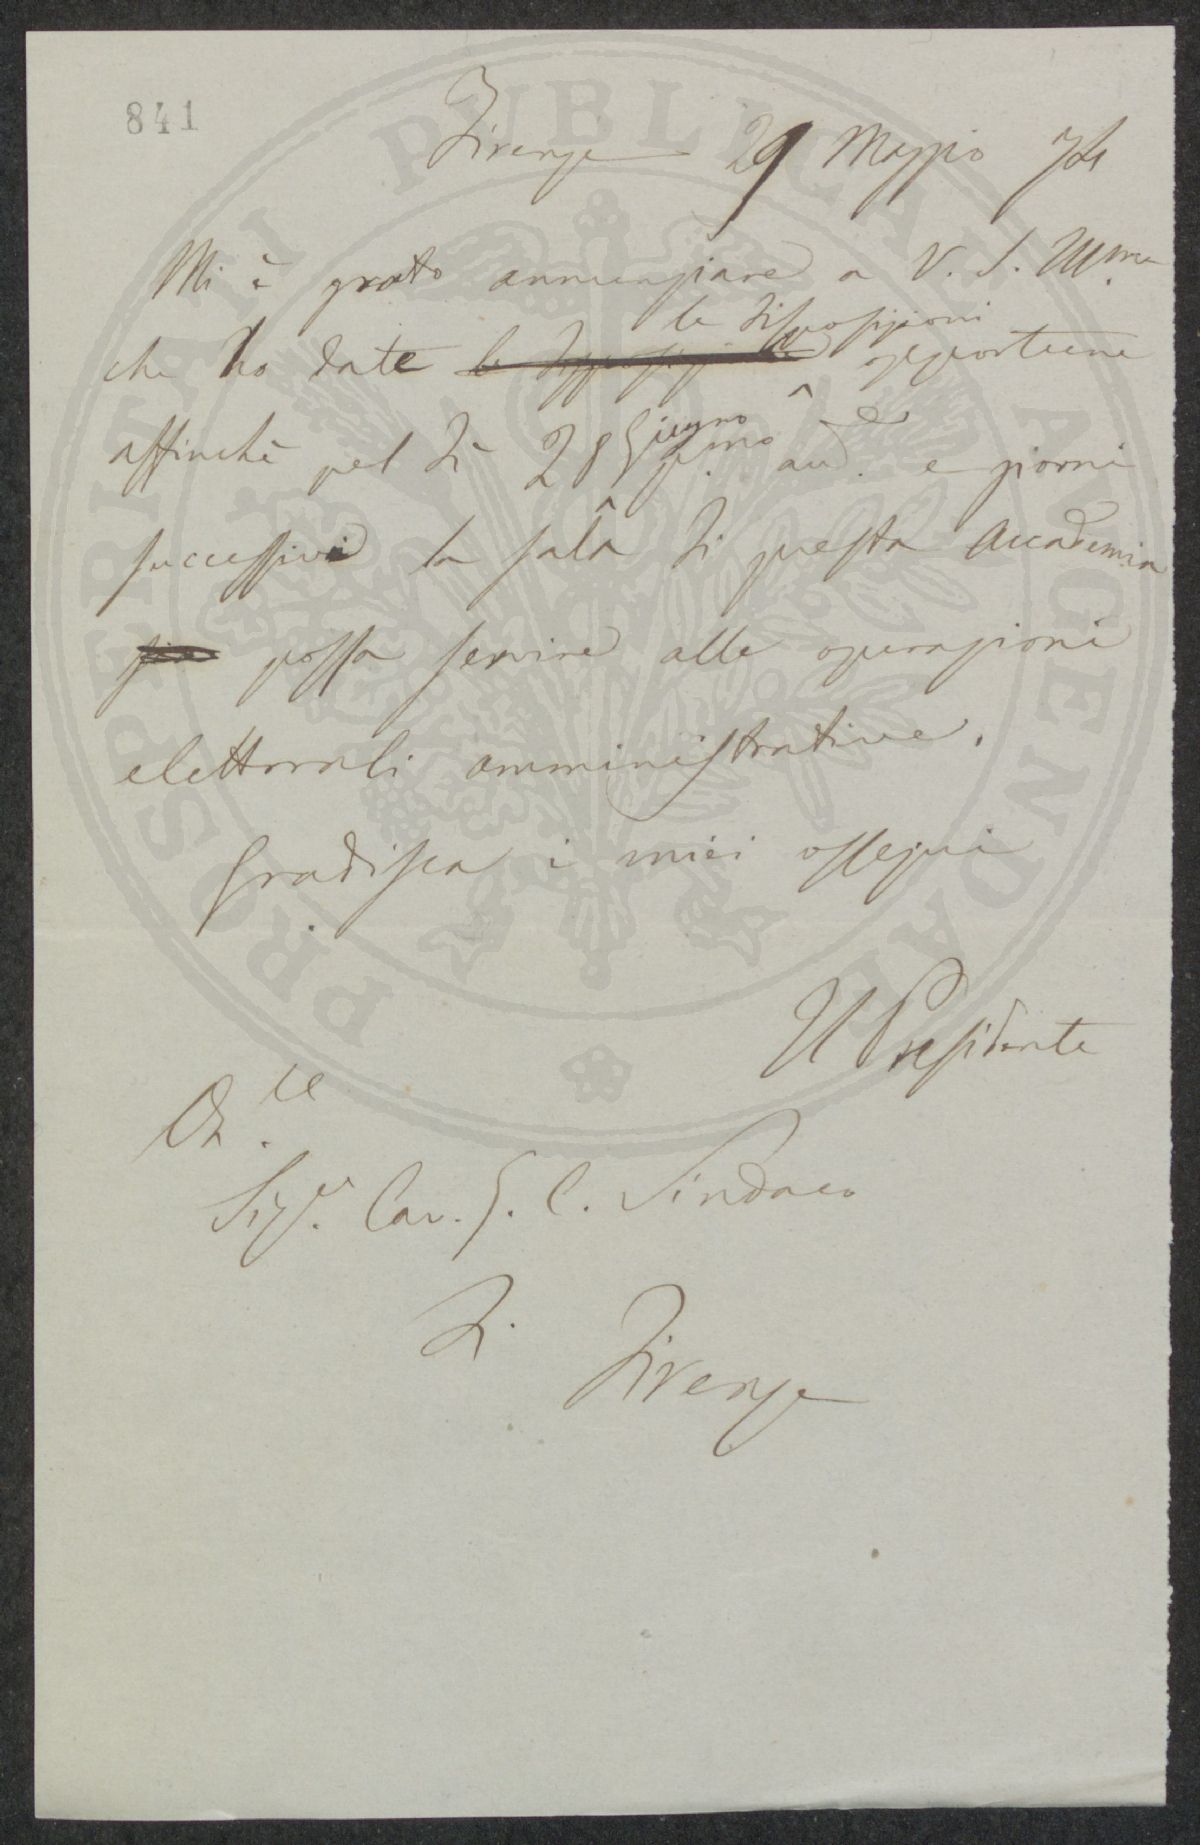 841
Firenze 29 Maggio 74
Mi è grato annunziare a V. S. Ill.ma
che ho date le disposizioni opportune
affinchè pel dì 28 Giugno p.mo avv.e e giorni
successivi la sala di questa Accademia
sia possa servire alle operazioni
elettorali amministrative.
Gradisca i miei ossequi
Il Presidente
Sig.r Cav. f. f. Sindaco
di Firenze
PROSPERITATI PUBLICAE AUGENDAE